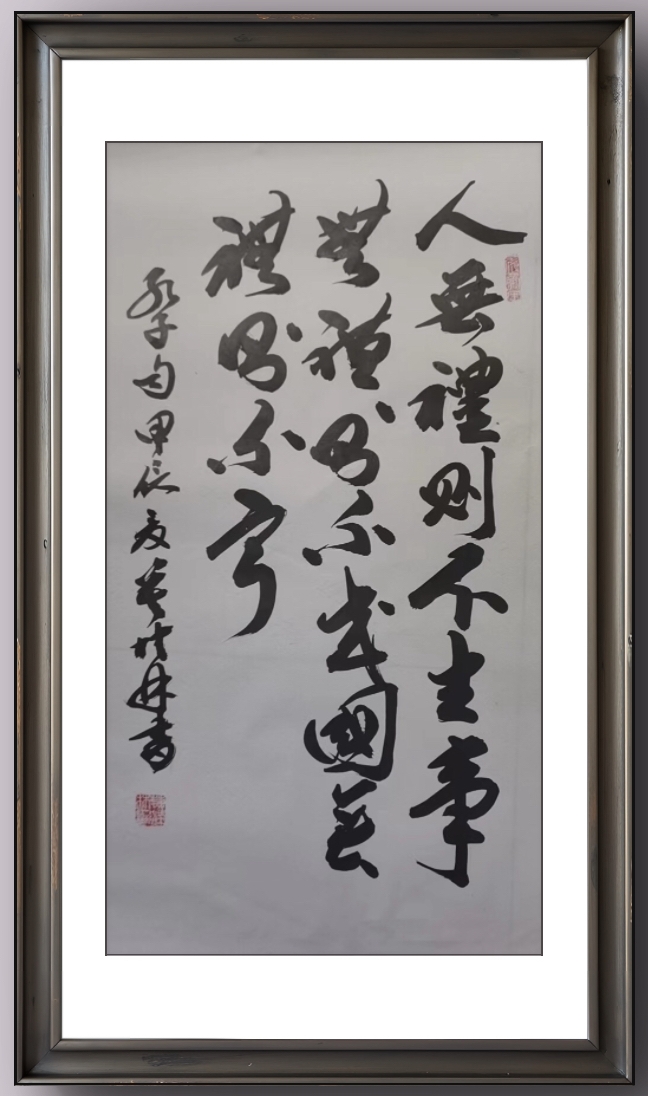 人無禮則不生事
無禮則不成國無
禮則不寧
子句甲辰夏林書